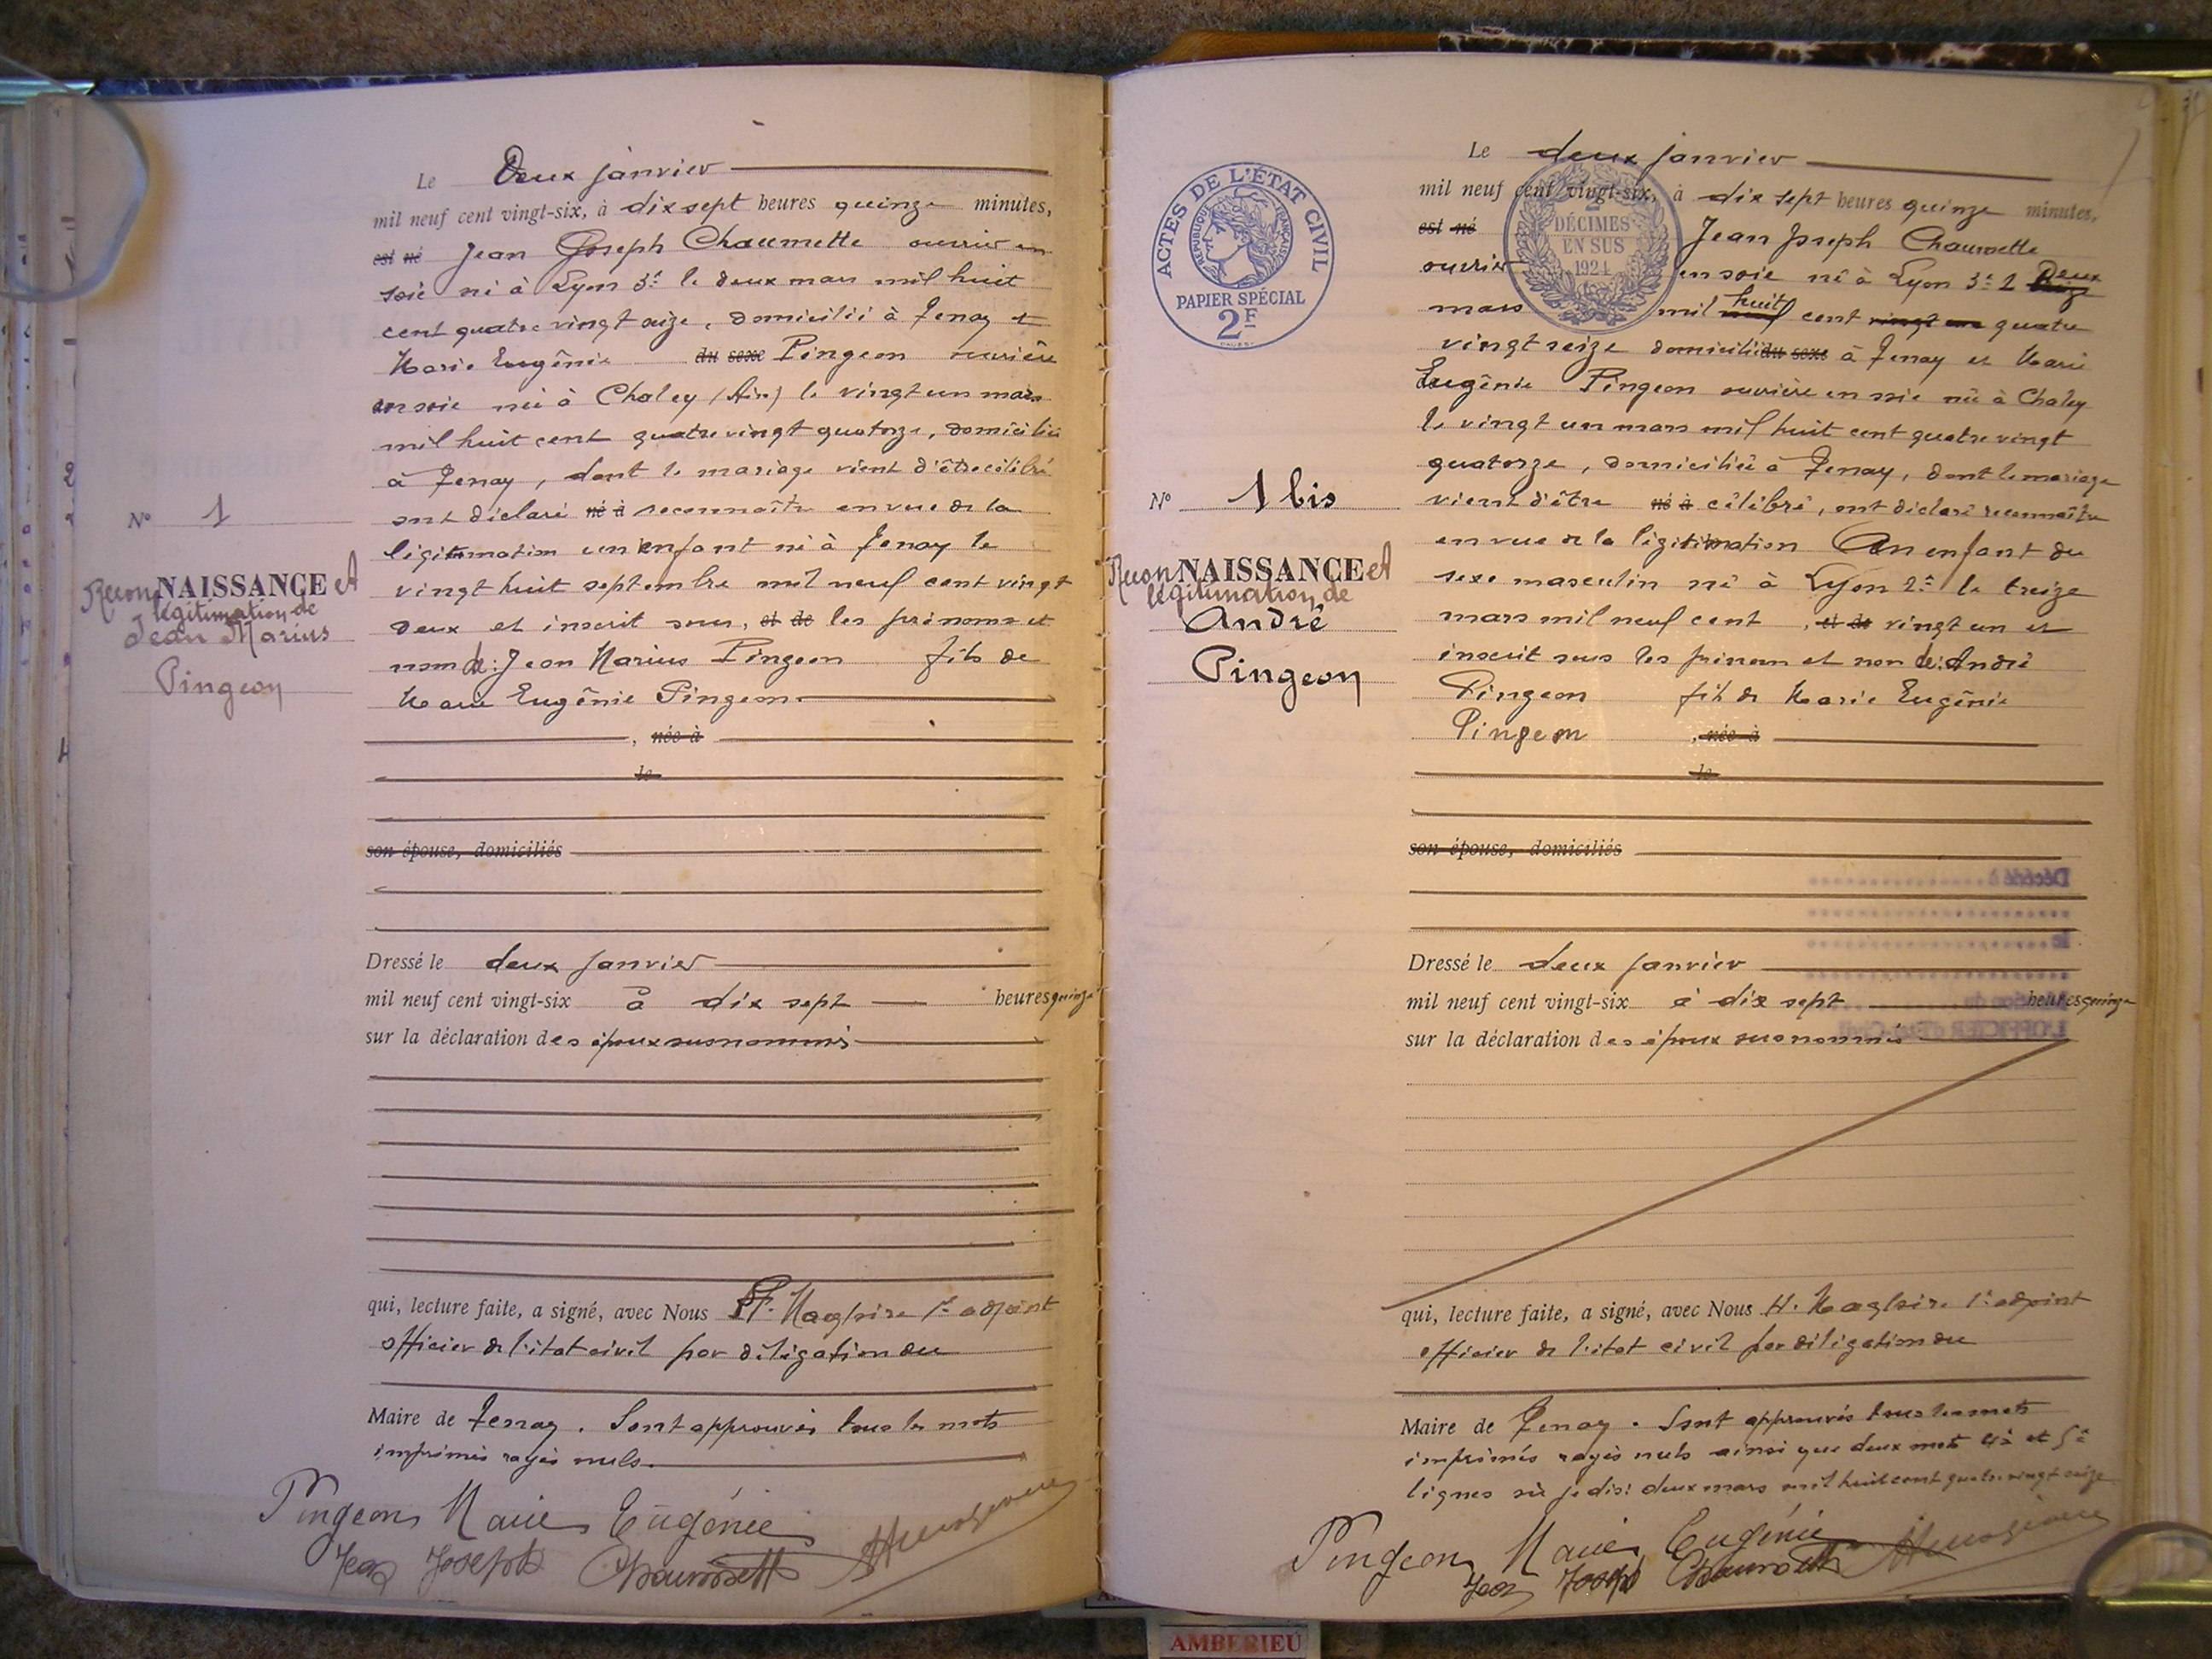 Le Deux janvier
mil neuf cent vingt-six, à dix sept heures quinze minutes,
est né Jean Joseph Chaumette ouvrier en
soie né à Lyon 3e le deux mars mil huit
cent quatre vingt seize, domicilié à Tenay et
Marie Eugénie du sexe Pingeon ouvrière
en soie née à Chaley (Ain) le vingt un mars
mil huit cent quatre vingt quatorze, domiciliée
à Tenay, dont le mariage vient d'être célébré
ont déclaré né à reconnaître en vue de la
légitimation un enfant né à Tenay le
vingt huit septembre mil neuf cent vingt
deux et inscrit sous, et de les prénoms et
nom de: Jean Marius Pingeon fils de
Marie Eugénie Pingeon.
, née à
le
son épouse, domiciliés
N° 1
ReconNAISSANCE et
légitimation de
Jean Marius
Pingeon
Dressé le deux janvier
mil neuf cent vingt-six à dix sept heures quinze
sur la déclaration des époux susnommés
qui, lecture faite, a signé, avec Nous H. Magloire 1er adjoint
officier de l'état civil par délégation du
Maire de Tenay. Sont approuvés tous les mots
imprimés rayés nuls.
Pingeon Marie Eugénie
Jean Joseph Chaumette
ACTES DE L'ÉTAT CIVIL
RÉPUBLIQUE FRANÇAISE
PAPIER SPÉCIAL
2F
2
DÉCIMES
EN SUS
1924
Le deux janvier
mil neuf cent vingt-six, à dix sept heures quinze minutes,
est né Jean Joseph Chaumette
ouvrier en soie né à Lyon 3e l Deux
mars mil huit cent vingt un quatre
vingt seize domicilié du sexe à Tenay et Marie
Eugénie Pingeon ouvrière en soie née à Chaley
le vingt un mars mil huit cent quatre vingt
quatorze, domiciliée à Tenay, dont le mariage
vient d'être né à célébré, ont déclaré reconnaître
en vue de la légitimation Un enfant du
sexe masculin né à Lyon 2e le treize
mars mil neuf cent, et de vingt un et
inscrit sous les prénom et nom de: André
Pingeon fils de Marie Eugénie
Pingeon , née à
le
son épouse, domiciliés
N° 1 bis
ReconNAISSANCE et
légitimation de
André
Pingeon
Décédé à
le
L'OFFICIER d'État-Civil
Dressé le deux janvier
mil neuf cent vingt-six à dix sept heures quinze
sur la déclaration des époux susnommés
qui, lecture faite, a signé, avec Nous H. Magloire 1er adjoint
officier de l'état civil par délégation du
Maire de Tenay. Sont approuvés tous les mots
imprimés rayés nuls ainsi que deux mots 4è et 5è
lignes où je dis: deux mars mil huit cent quatre vingt seize
Pingeon Marie Eugénie
Jean Joseph Chaumette
AMBERIEU